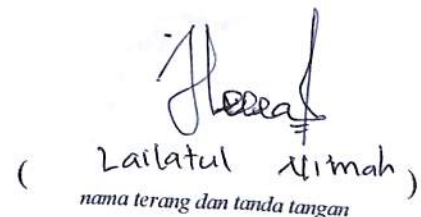 ( Lailatul Ni'mah )
nama terang dan tanda tangan